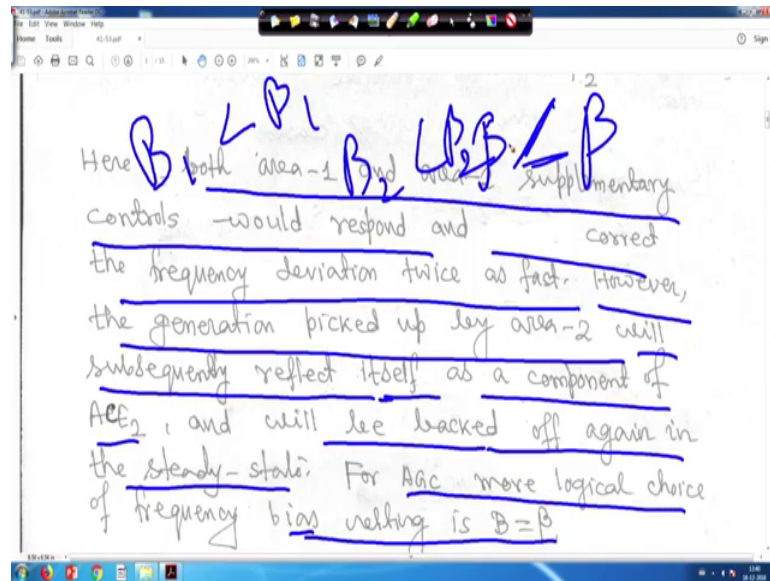 41-53.pdf - Adobe Acrobat Reader DC
File Edit View Window Help
Home Tools 41-53.pdf × Sign
1 / 15
1.2
B1 < β1 B2 < β2 β < β
Here both area-1 and area-2 supplementary
controls would respond and correct
the frequency deviation twice as fast. However,
the generation picked up by area-2 will
subsequently reflect itself as a component of
ACE2, and will be backed off again in
the steady-state. For AGC more logical choice
of frequency bias setting is B=β